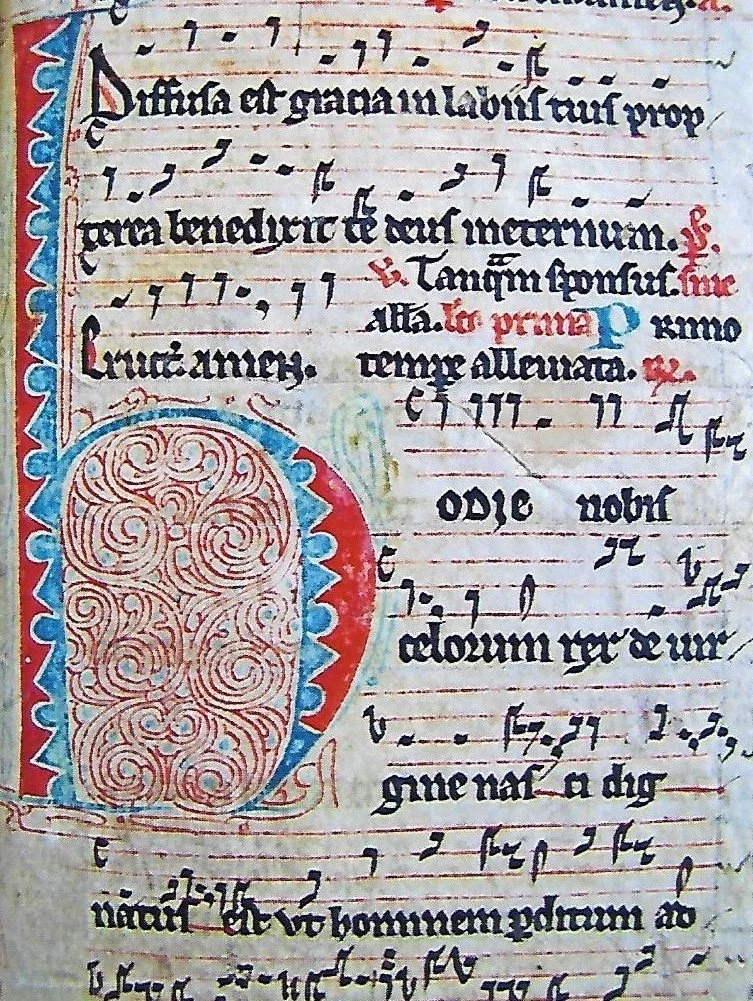 Diffusa est gracia in labiis tuis prop
terea benedixit te deus ineternum. ps.
Eructᷣ. amen. v. Tanqᷓm sponsus. sine
allᷓa. lc̄o primā Primo
tempꝛe alleuiata. R.
Hodie nobis
celorum rex de uir
gine nas ci dig
natus est vt hominem ꝑditum ad